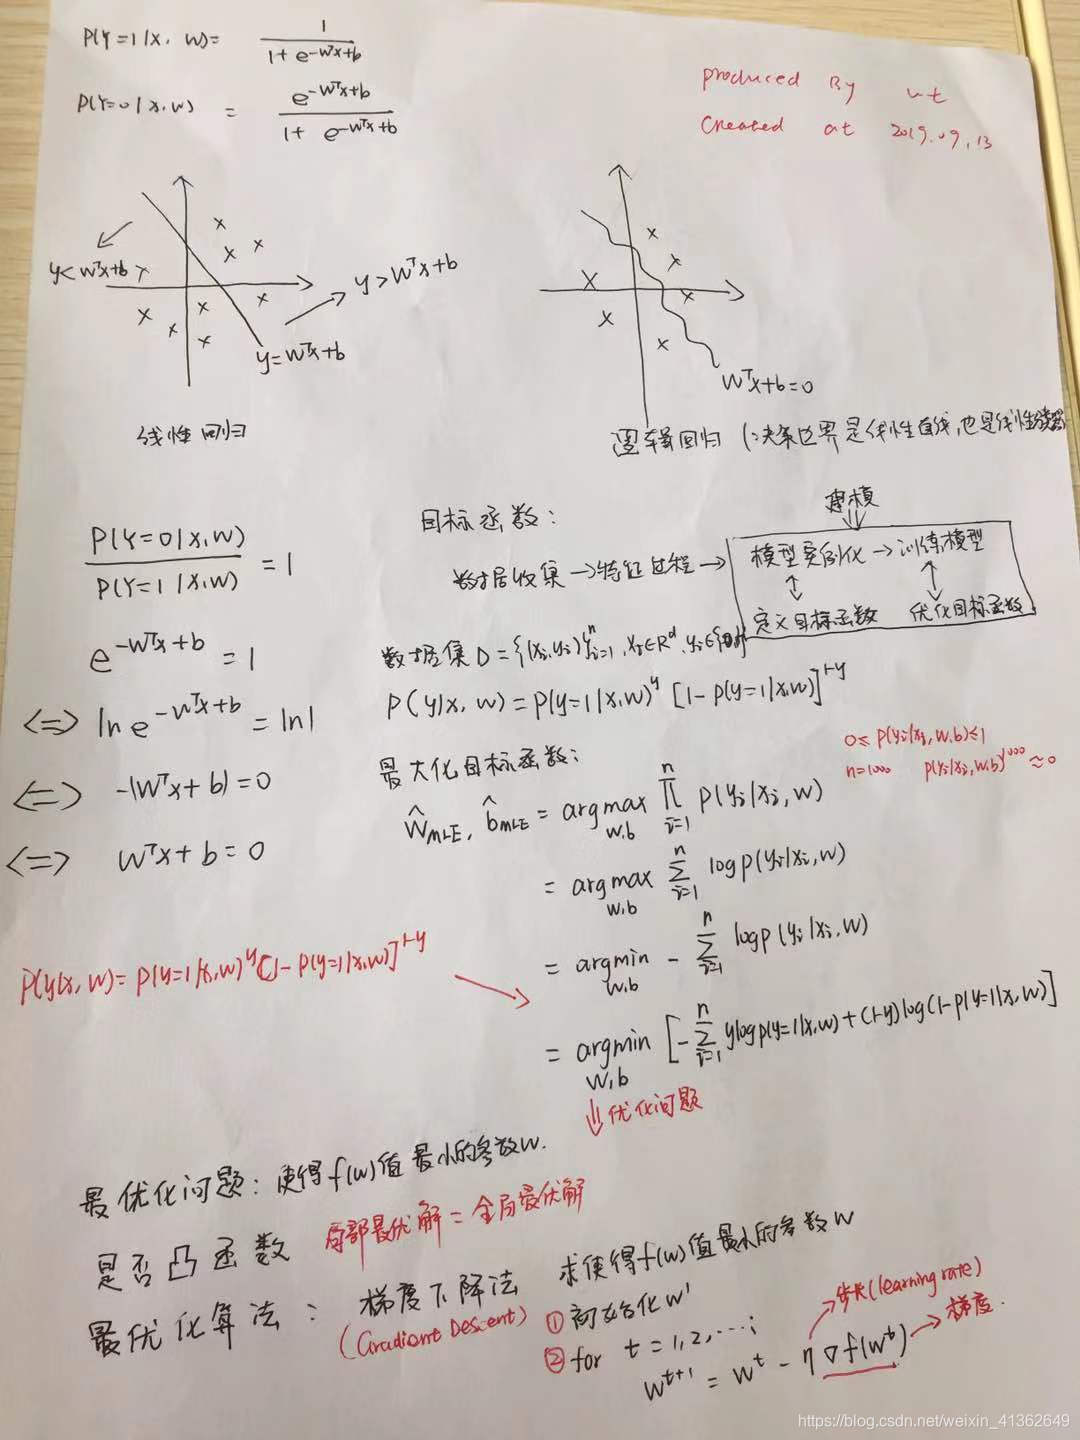 P(Y=1|x, w)= 1 / 1+e^{-wᵀx+b}
P(Y=0|x,w) = e^{-wᵀx+b} / 1+e^{-wᵀx+b}
produced By
Created at 2019.09.13
y<wᵀx+b
y>wᵀx+b
y=wᵀx+b
线性回归
wᵀx+b=0
逻辑回归 (:决策边界是线性直线,也是线性
P(Y=0|x,w) / P(Y=1|x,w) = 1
e^{-wᵀx+b} = 1
<=> ln e^{-wᵀx+b} = ln1
<=> -(wᵀx+b)=0
<=> wᵀx+b=0
目标函数:
建模
数据收集→特征过程→ 模型实例化→训练模型
定义目标函数 优化目标函数
数据集D={(xᵢ,yᵢ)}ⁿᵢ₌₁, xᵢ∈Rᵈ, yᵢ∈{0,1}
P(y|x, w)=P(y=1|x,w)^y [1-p(y=1|x,w)]^{1-y}
最大化目标函数:
0≤p(yᵢ|xᵢ,w,b)≤1
n=1000 p(yᵢ|xᵢ,w,b)^{1000}≈0
ŵ_MLE, b̂_MLE = argmax_{w,b} ∏ⁿᵢ₌₁ p(yᵢ|xᵢ,w)
= argmax_{w,b} ∑ⁿᵢ₌₁ log p(yᵢ|xᵢ,w)
= argmin_{w,b} - ∑ⁿᵢ₌₁ log p(yᵢ|xᵢ,w)
P(y|x, w)= p(y=1|x,w)^y [1-p(y=1|x,w)]^{1-y}
= argmin_{w,b} [-∑ⁿᵢ₌₁ ylogp(y=1|x,w)+(1-y)log(1-p(y=1|x,w)]
优化问题
最优化问题:使得f(w)值最小的参数w.
是否凸函数 局部最优解=全局最优解
最优化算法: 梯度下降法 求使得f(w)值最小的参数w
(Gradient Descent) ① 初始化w¹
② for t=1,2,...;
w^{t+1} = w^t - η∇f(w^t)
步长(learning rate)
梯度.
https://blog.csdn.net/weixin_41362649